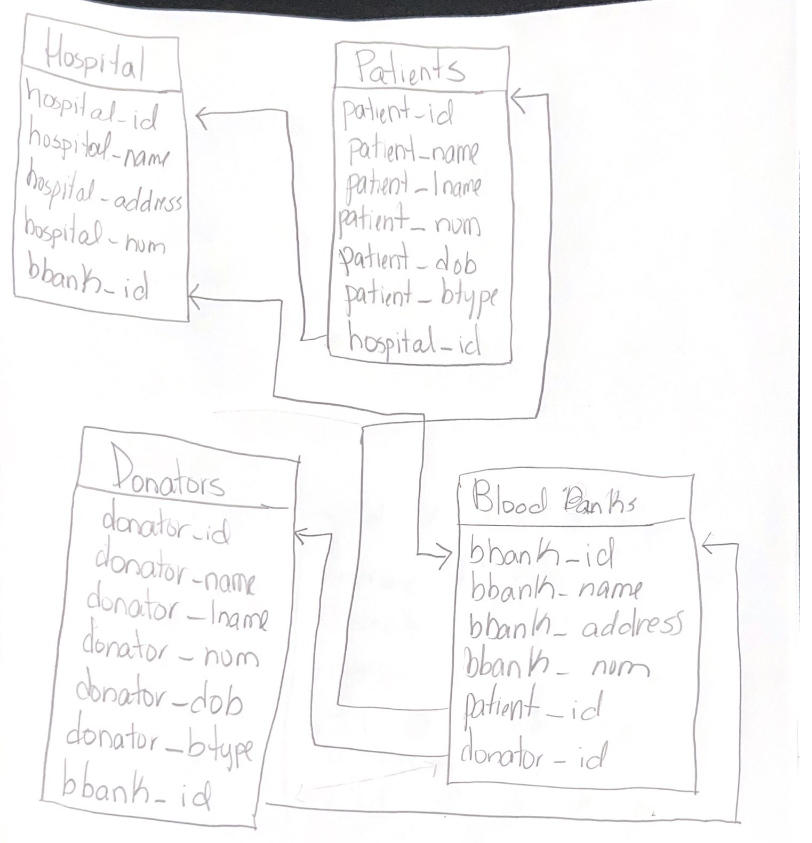 Hospital
hospital_id
hospital_name
hospital_address
hospital_num
bbank_id
Patients
patient_id
patient_name
patient_lname
patient_num
patient_dob
patient_btype
hospital_id
Donators
donator_id
donator_name
donator_lname
donator_num
donator_dob
donator_btype
bbank_id
Blood Banks
bbank_id
bbank_name
bbank_address
bbank_num
patient_id
donator_id